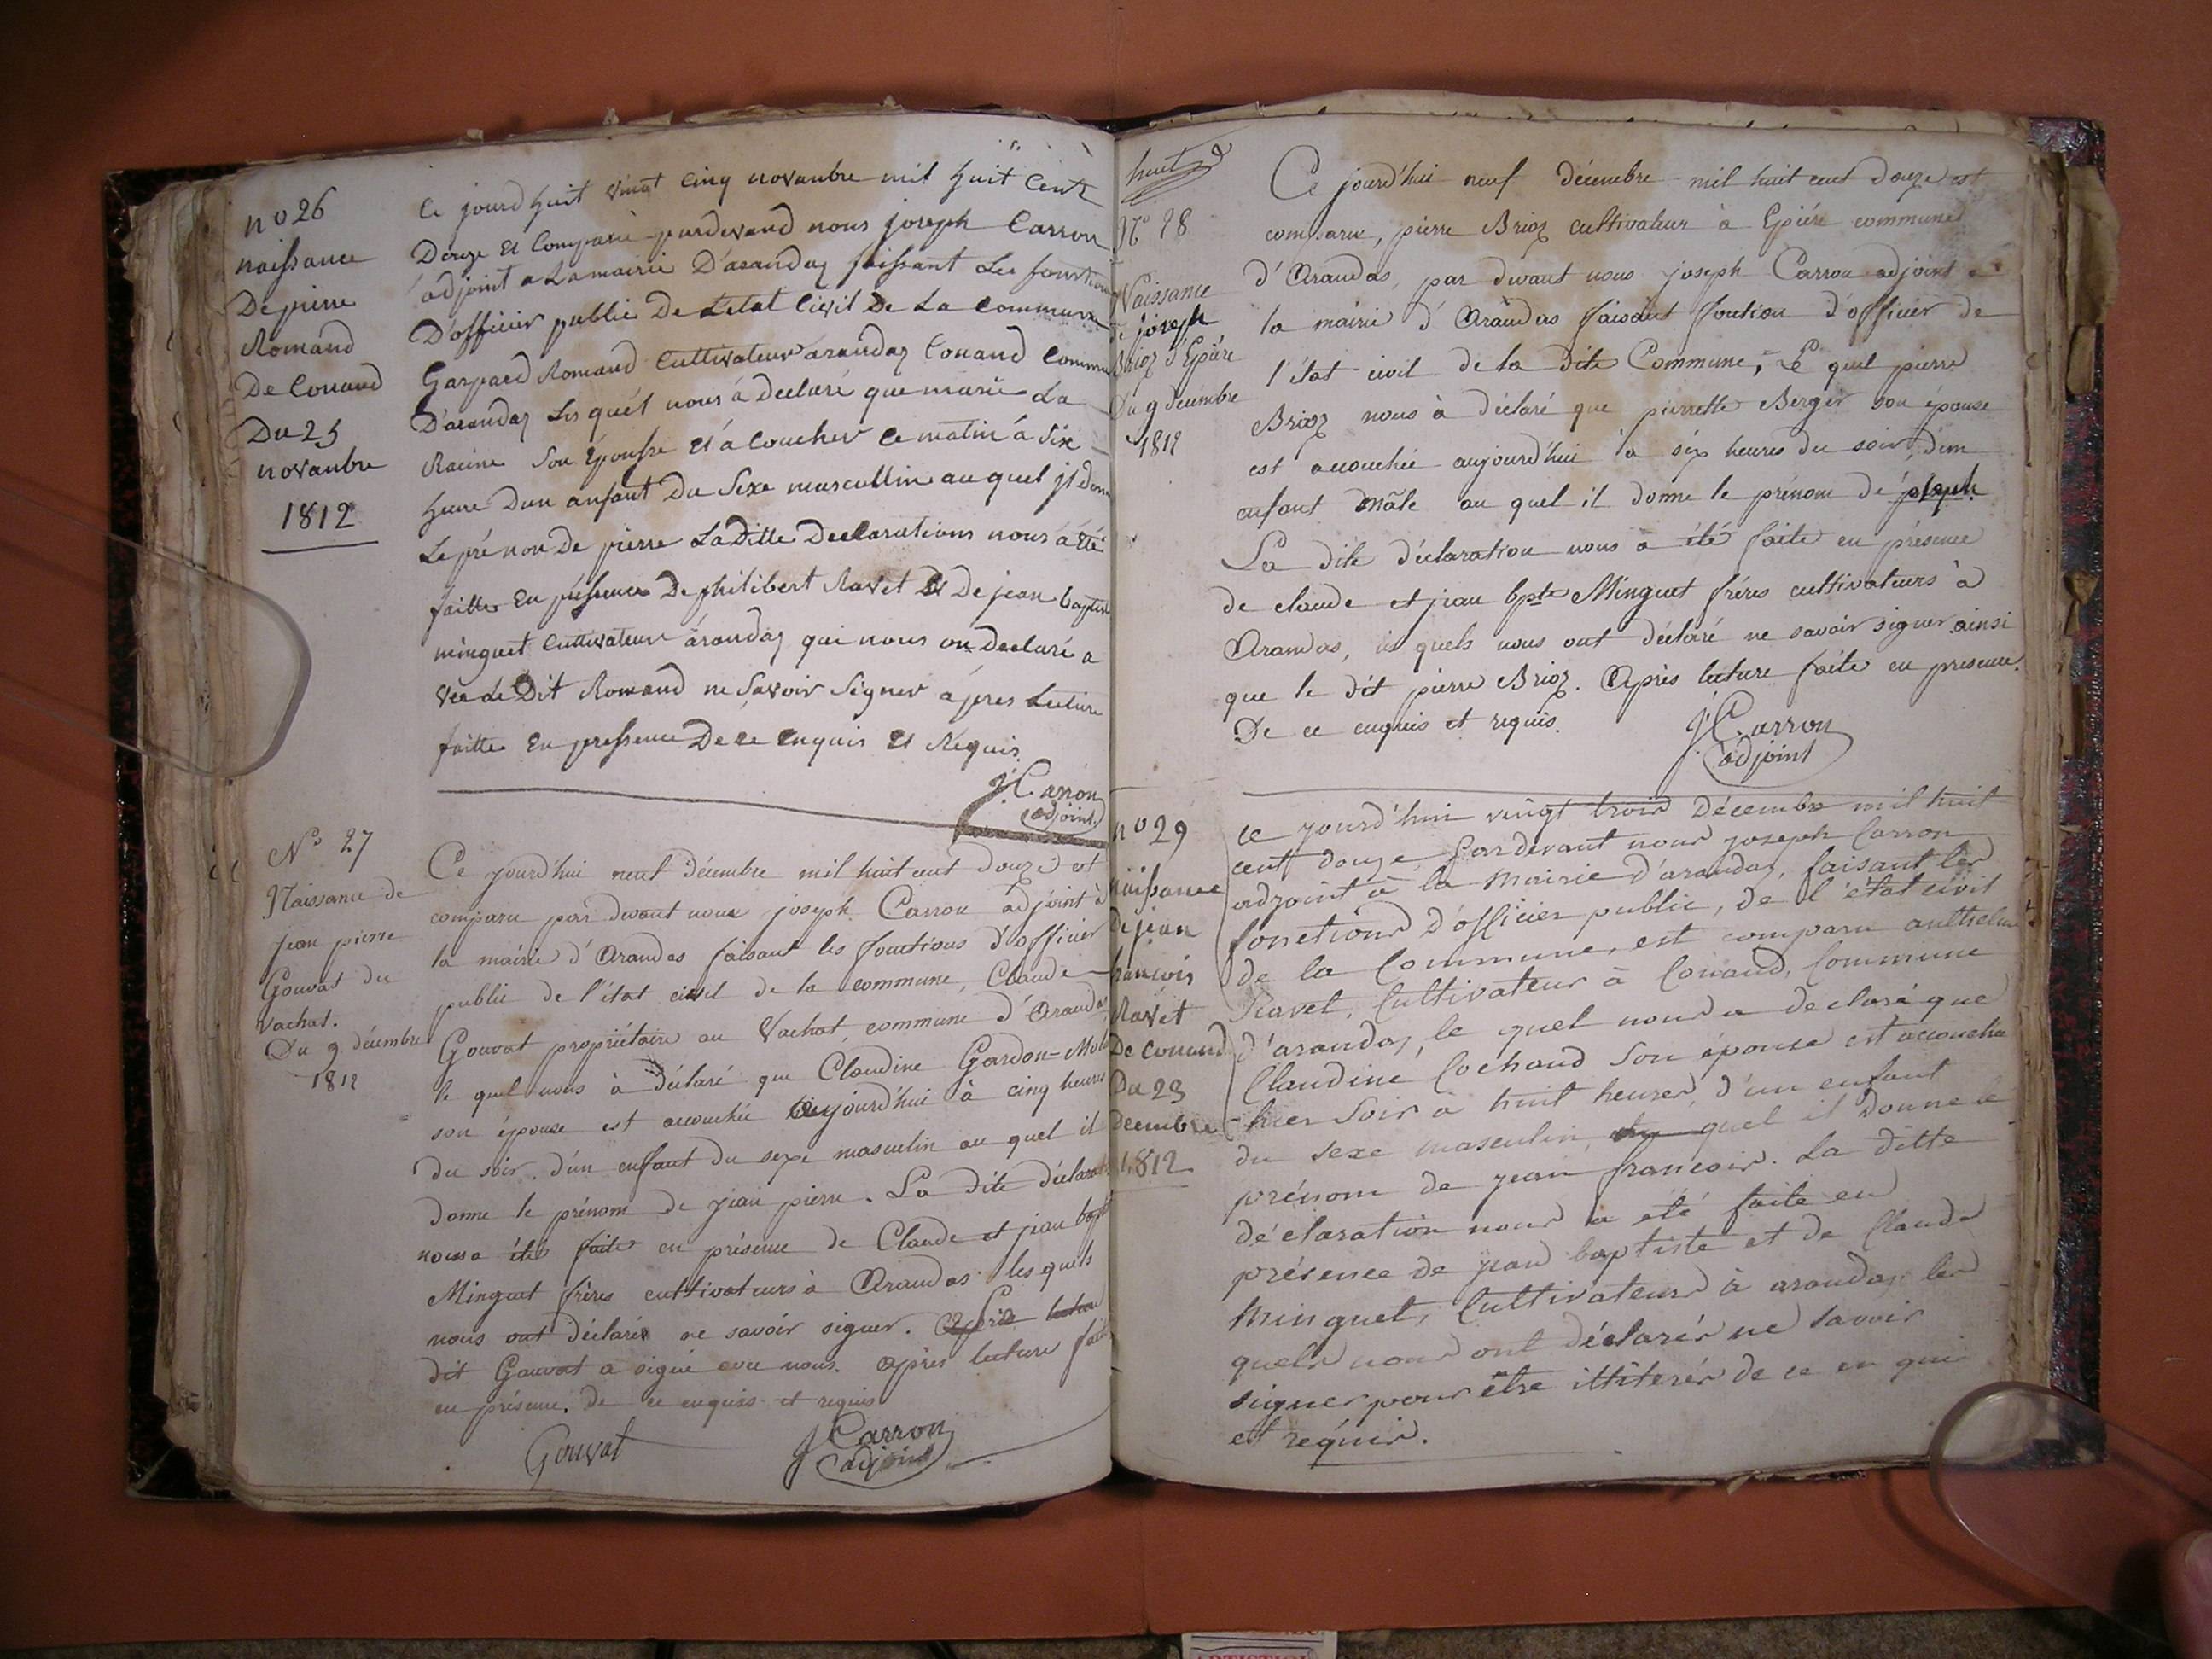 n° 26
naissance
De pierre
Romand
De Conand
Du 25
novanbre
1812
Ce jourd huit vingt cinq novanbre mil huit Cents
Douze Et Comparu pardevand nous joseph Carron
adjoint a La mairie D'arandaz faissant Les fonction
D'officier public De Letat Civil De La Commune
Gaspard Romand Cultivateur arandaz Conand Commu
D'arandaz Les quél nous á Declaré que marie La
Racine Son Epousse Et á Coucher Ce matin á Six
heure Dun anfant Du Sexe mascullin au quel jl donn
Le pré non De pierre La Ditte Declarations nous á Eté
faitte En pressence De philibert Ravet Et De jean baptiste
minguet Cultivateur árandaz qui nous on Declaré a
vec Le Dit Romand ne Savoir Signer ápres Lecture
faitte En pressence De Ce Enquis Et Requis
J. Carron
adjoint
N° 27
Naissance de
jean pierre
Gouvat du
vachat.
Du 9 décembre
1812
Ce jourd'hui neuf décembre mil huit cent douze est
comparu par devant nous joseph Carron adjoint à
la mairie d'Arandas faisant les fonctions d'officier
public de l'état civil de la commune, Claude
Gouvat propriétaire au Vachat, commune d'Arandas
le quel nous à déclaré que Claudine Gardon-Mol
son épouse est accouchée aujourd'hui à cinq heures
du soir, d'un enfant du sexe masculin au quel il
donne le prénom de jean pierre. La dite déclarat
nous a été faite en présence de Claude et jean bapt
Minguet frères cultivateurs à Arandas les quels
nous ont déclarés ne savoir signer. Après lecture
dit Gouvat a signé avec nous. Après lecture faite
en présence. de ce enquis et requis
Gouvat
J Carron
adjoint
huit
N° 28
Naissance
de joseph
Brioz d'Epière
Du 9 décembre
1812
Ce jourd'hui neuf décembre mil huit cent douze est
comparu, pierre Brioz cultivateur à Epière commune
d'Arandas, par devant nous joseph Carron adjoint à
la mairie d'Arandas faisant fonction d'officier de
l'état civil de la dite Commune, Le quel pierre
Brioz nous à déclaré que pierrette Berger son épouse
est accouchée aujourd'hui à six heures du soir, d'un
enfant mâle au quel il donne le prénom de joseph.
La dite déclaration nous a été faite en présence
de claude et jean bpte Minguet frères cultivateurs à
Arandas, les quels nous ont déclaré ne savoir signer ainsi
que le dit pierre Brioz. Après lecture faite en presence.
De ce enquis et requis.
J. Carron
adjoint
n° 29
naissance
De jean
francois
Ravet
De conand
Du 23
decembre
1812
ce jourd'hui vingt trois Décembre mil huit
cent douze, pardevant nous joseph Carron
adjoint à la Mairie d'arandas, faisant les
fonctions d'officier public, de l'état civil
de la Commune, est comparu anthelme
Ravet, Cultivateur à Conand, Commune
d'arandas, le quel nous a declaré que
Claudine Cochand Son épouse est accouchée
hier Soir à huit heures, d'un enfant
du sexe masculin, quel il donne le
prénom de jean francois. La ditte
déclaration nous a été faite en
présence de jean baptiste et de Claude
Minguet, Cultivateurs à arandas, les
quels nous ont déclarés ne savoir
signer pour être illiterés de ce en quis
et requis.